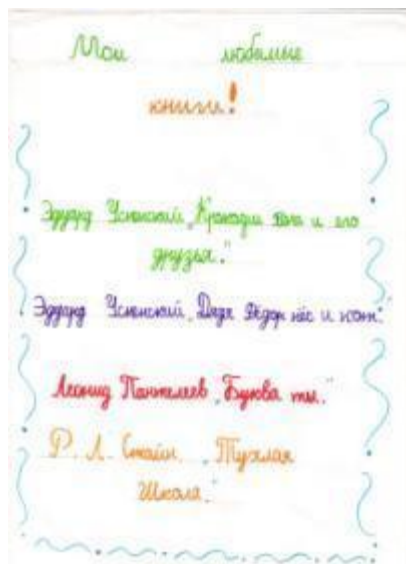 Мои любимые
книги!
Эдуард Успенский „Крокодил Гена и его
друзья."
Эдуард Успенский „Дядя Фёдор пёс и кот."
Леонид Пантелеев „Буква ты."
Р. Л. Стайн. „Тухлая
Школа."